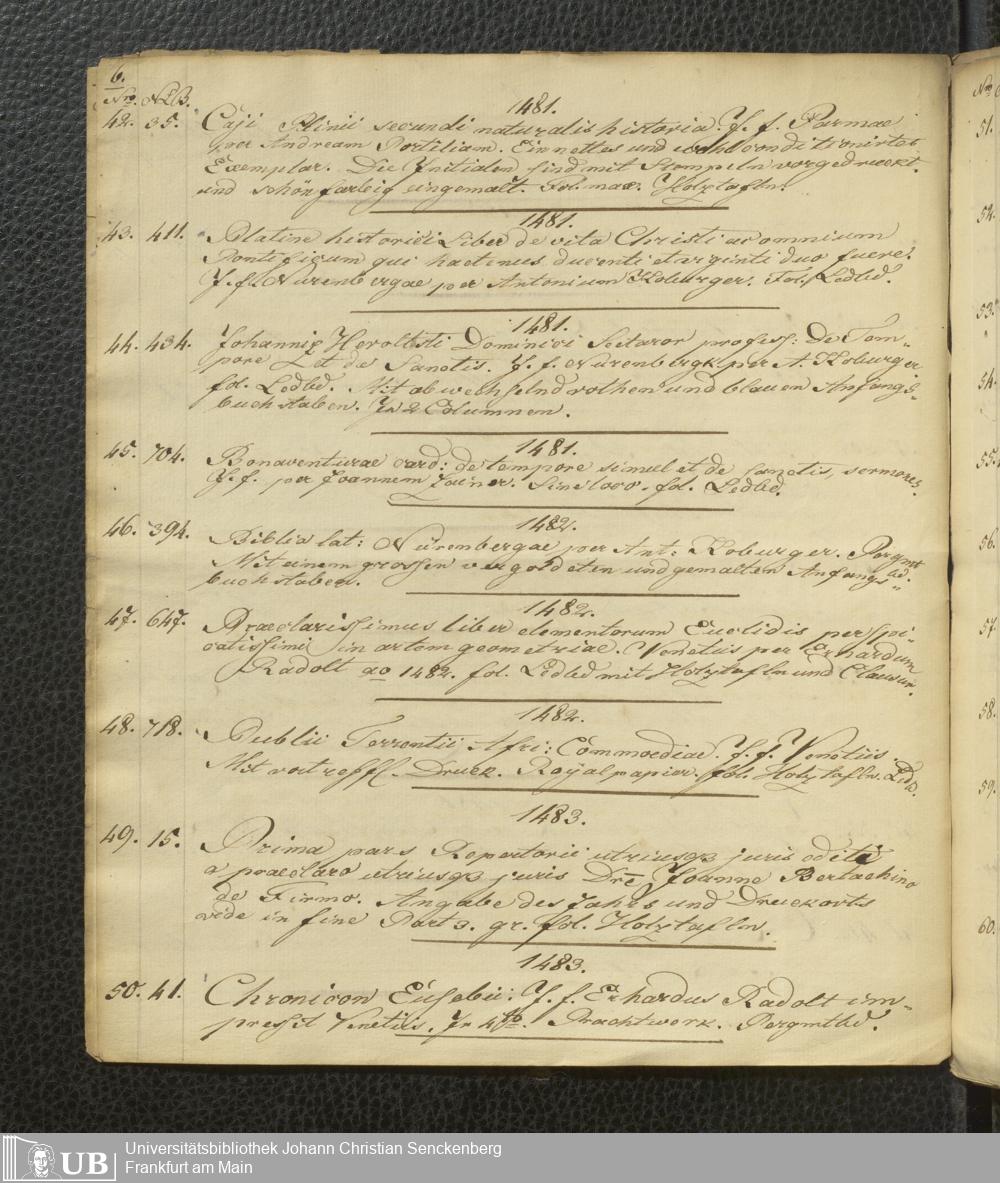 6.
Nro. NLB.
1481.
42. 35. Caji Plinii secundi naturalis historia. J. f. Parmae
per Andream Portiliam. Ein nettes und wohl conditionirtes
Exemplar. Die Initialen sind mit Stempeln vorgedruckt.
und schön farbig eingemalt. Fol. max. Holztafln.
1481.
43. 411. Platine historici Liber de vita Christi ac omnium
Pontificum qui hactenus ducenti et viginti duo fuere.
J. f. Nurenbergae per Antonium Koburger. Fol. Ledbd.
1481.
44. 434. Johannis Herollsti Dominici Sectaror profess: De Tem-
pore Let de Sanctis. J. f. Nurenbergk per A. Koburger
fol. Ledbd. Mit abwechselnd rothen und blauen Anfangs-
buchstaben. In 2 Columnen.
1481.
45. 704. Bonaventurae card: de tempore simul et de sanctis, sermones.
J. f. per Joannem Zainer. Sine loco. fol. Ledbd.
1482.
46. 394. Biblia lat: Nürenbergae per Ant: Koburger. Pergmt
bd.
Mit einem grossen vergoldeten und gemalten Anfangs=
buchstaben.
1482.
47. 647. Praeclarissimus liber elementorum Euclidis perspi-
catissimi in artem geometriae. Venetiis per Erhardum
Radolt ao 1482. fol. Ledbd mit Holztafln und Clausur.
1482.
48. 718. Publii Terrentii Afri: Commoediae. J. f. Venetiis.
Mit vortreffl. Druck. Royalpapier. fol. Holztafln. Ledb.
1483.
49. 15. Prima pars Repertorii utriusqз juris editi
a praeclaro utriusqз juris Dre Joanne Bertachino
de Firmo. Angabe des Jahrs und Druckorts
vide in fine Part 3. gr. fol. Holztafln.
1483.
50. 41. Chronicon Eusebii. J. f. Erhardus Radolt im-
pressit Venetiis. In 4to. Prachtwerk. Pergmtbd.
Nro
51.
52.
53.
54.
55.
56.
57.
58.
59.
60.
UB
Universitätsbibliothek Johann Christian Senckenberg
Frankfurt am Main